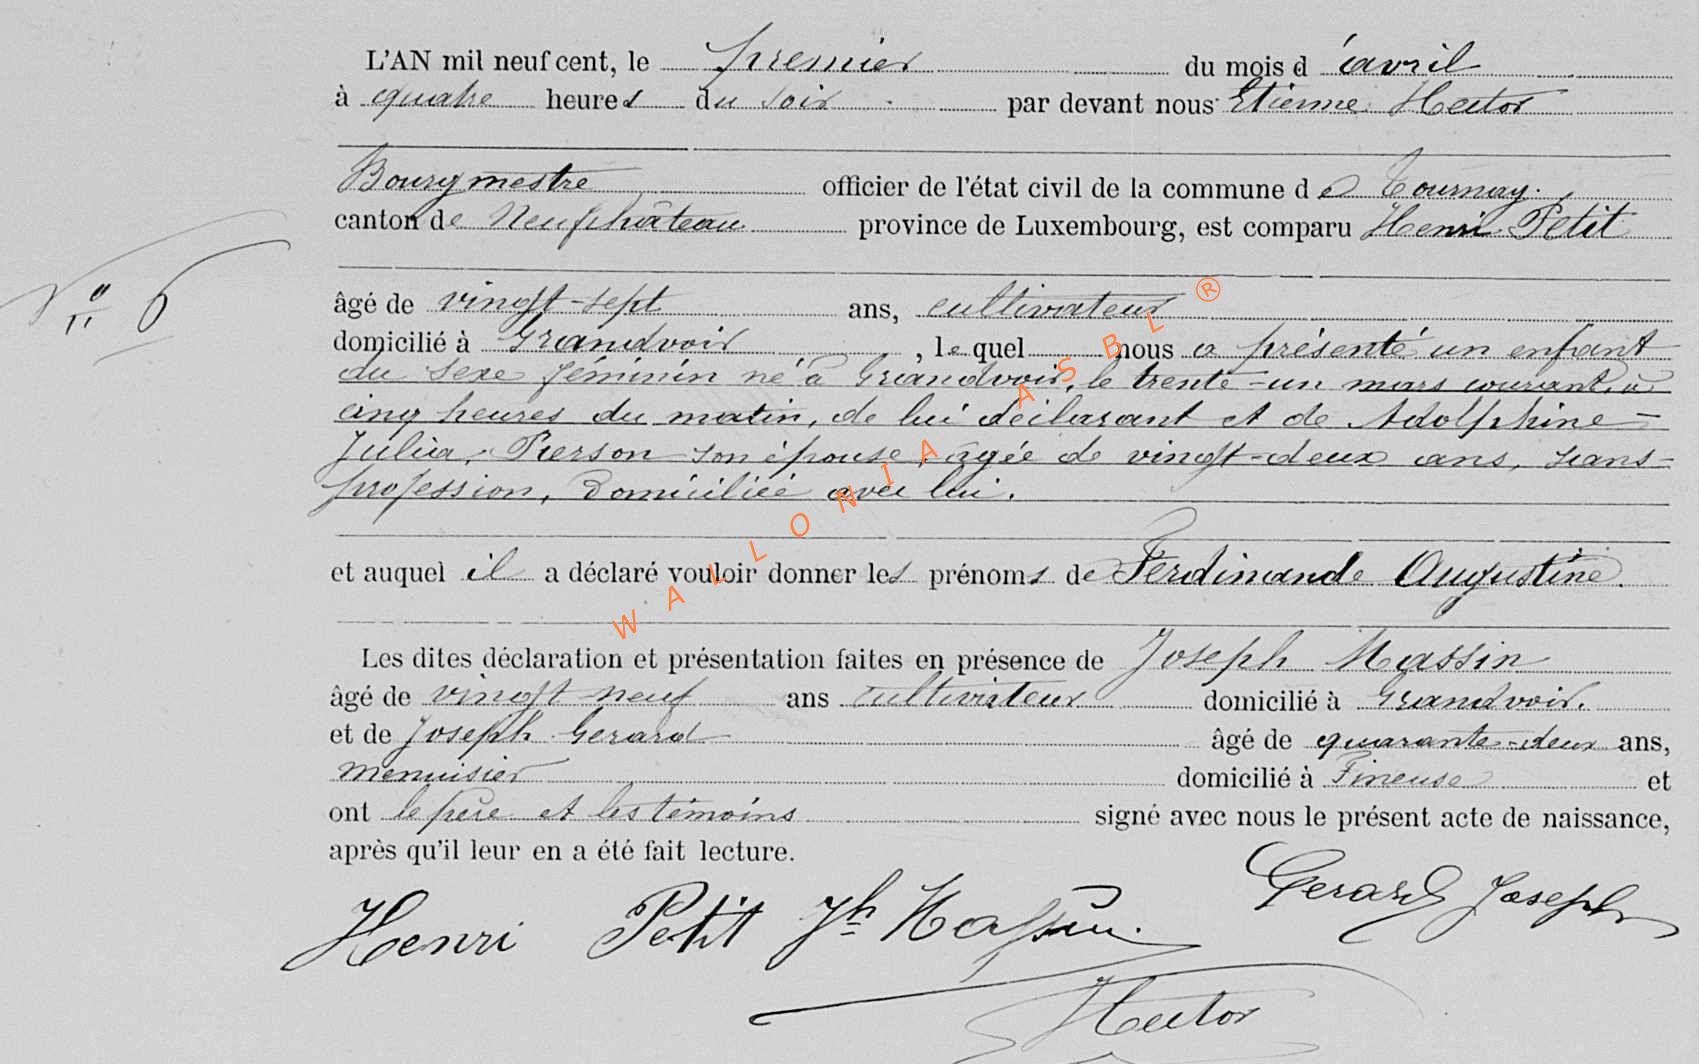 L'AN mil neuf cent, le premier du mois d'avril
à quatre heures du soir par devant nous Etienne Hector
Bourgmestre officier de l'état civil de la commune de Tournay.
canton de Neufchâteau province de Luxembourg, est comparu Henri Petit
N° 6
âgé de vingt-sept ans, cultivateur
domicilié à Grandvoir, lequel nous a présenté un enfant
du sexe féminin né à Grandvoir, le trente-un mars courant, à
cinq heures du matin, de lui déclarant et de Adolphine-
Julia, Pierson son épouse, âgée de vingt-deux ans, sans-
profession, domiciliée avec lui.
et auquel il a déclaré vouloir donner les prénoms de Ferdinande Augustine.
Les dites déclaration et présentation faites en présence de Joseph Massin
âgé de vingt neuf ans cultivateur domicilié à Grandvoir.
et de Joseph Gerard âgé de quarante-deux ans,
menuisier domicilié à Fineuse et
ont le père et les témoins signé avec nous le présent acte de naissance,
après qu'il leur en a été fait lecture.
Henri Petit Jh Massin. Gerard Joseph
Hector
WALLONIA ASBL ®